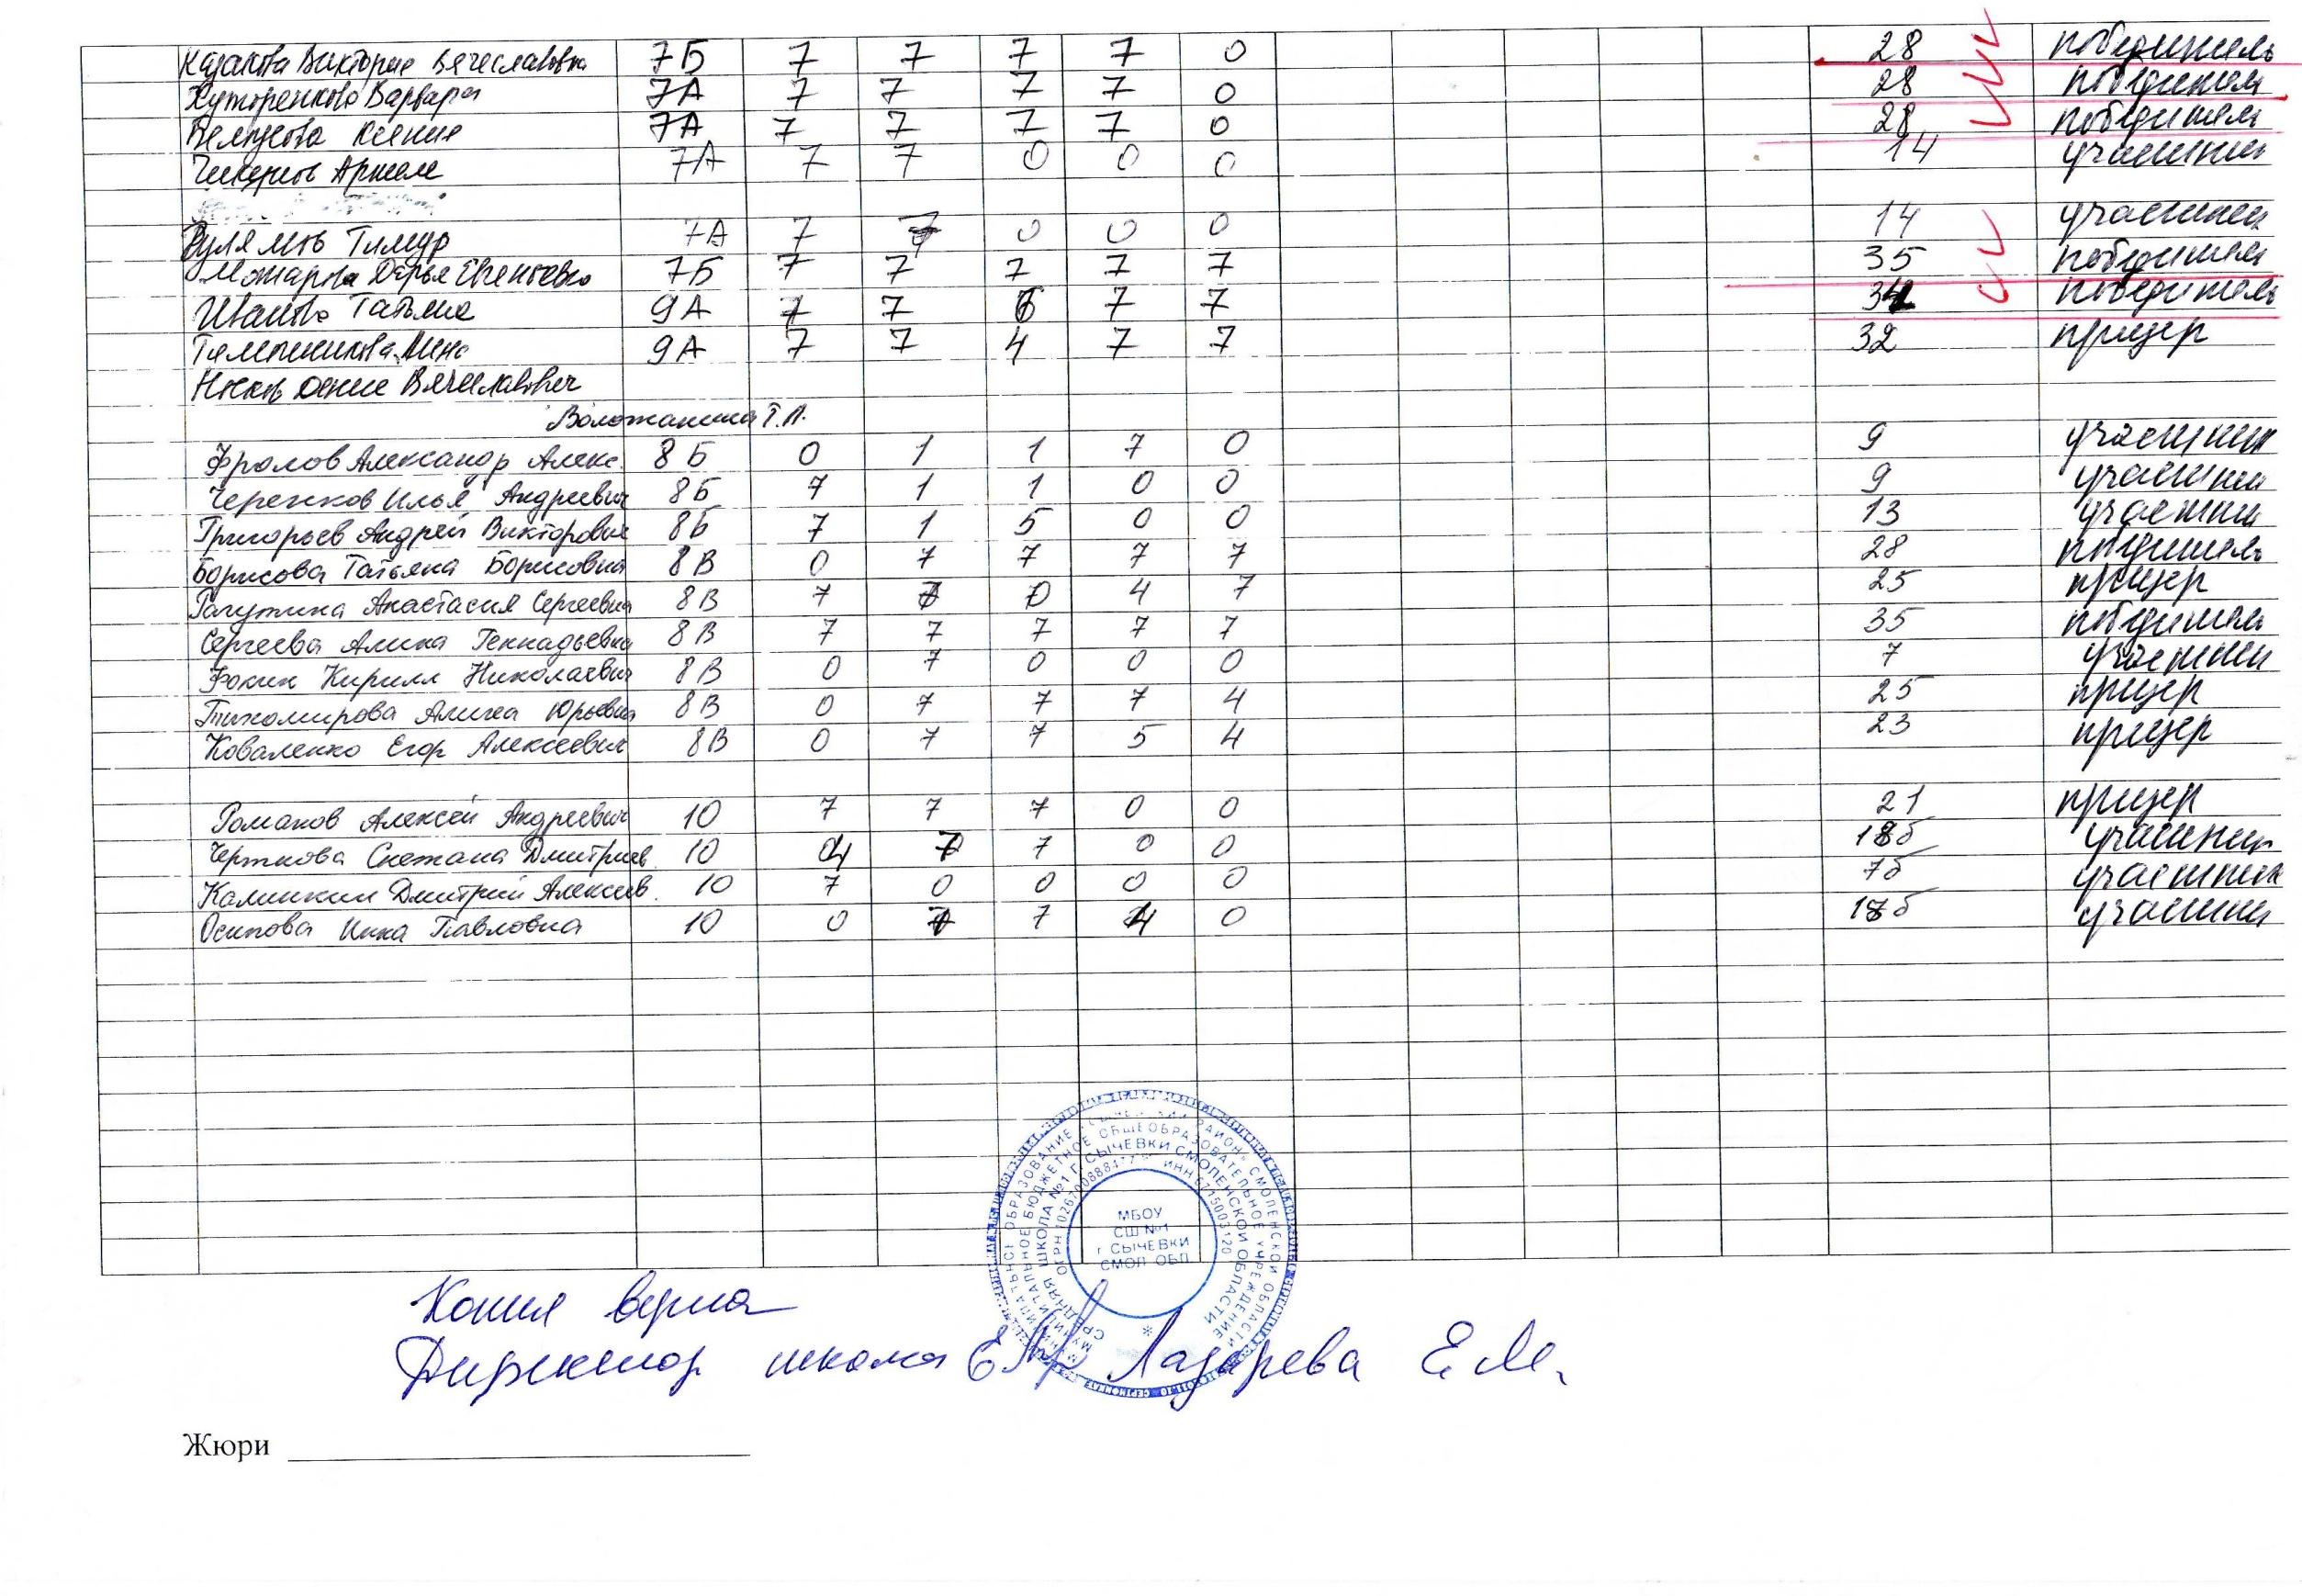 Казакова Виктория Вячеславовна 7Б 7 7 7 7 0 28 победитель
Хуторенкова Варвара 7А 7 7 7 7 0 28 победитель
Ксения 7А 7 7 7 7 0 28 победитель
7А 7 7 0 0 0 14 участник
Тимур 7А 7 7 0 0 0 14 участник
Можарова Дарья Евгеньевна 7Б 7 7 7 7 7 35 победитель
Иванова Татьяна 9А 7 7 6 7 7 34 победитель
9А 7 7 4 7 7 32 призер
Вячеславович
Воложанина Т.А.
Фролов Александр Алекс. 8Б 0 1 1 7 0 9 участник
Черенков Илья Андреевич 8Б 7 1 1 0 0 9 участник
Григорьев Андрей Викторович 8Б 7 1 5 0 0 13 участник
Борисова Татьяна Борисовна 8В 0 7 7 7 7 28 победитель
Анастасия Сергеевна 8В 7 4 7 25 призер
Сергеева Алина Геннадьевна 8В 7 7 7 7 7 35 победитель
Фокин Кирилл Николаевич 8В 0 7 0 0 0 7 участник
Тихомирова Алина Юрьевна 8В 0 7 7 7 4 25 призер
Коваленко Егор Алексеевич 8В 0 7 7 5 4 23 призер
Романов Алексей Андреевич 10 7 7 7 0 0 21 призер
Черткова Снежана Дмитриев. 10 4 7 7 0 0 18б участник
Калинкин Дмитрий Алексеев. 10 7 0 0 0 0 7б участник
Осипова Инна Павловна 10 0 7 7 4 0 18б участник
МБОУ
СШ №1
г СЫЧЕВКИ
СМОЛ ОБЛ
Копия верна
Директор школы Лазарева Е.М.
Жюри